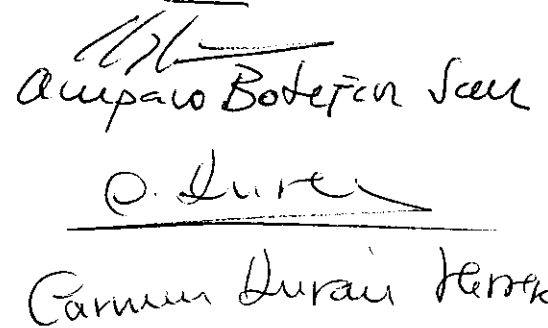 Amparo Botejon San
C. Duran
Carmen Durán Herre